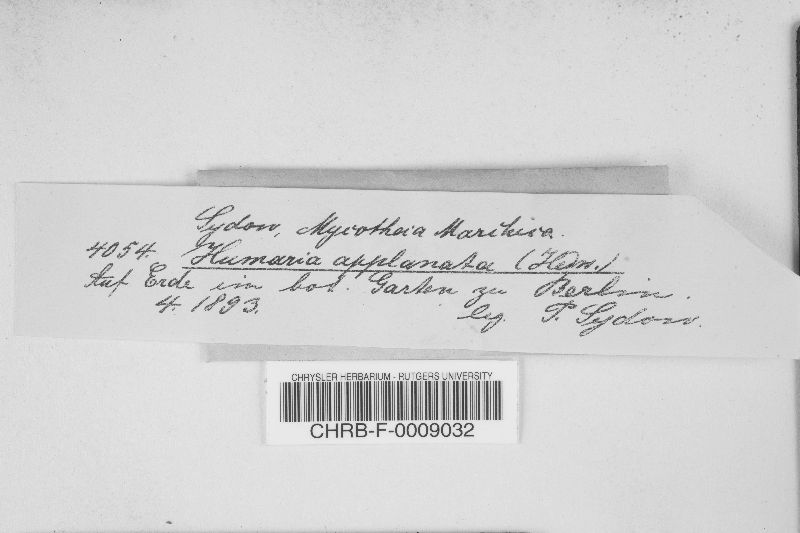 Sydow, Mycotheca Marchica.
4054. Humaria applanata (Hedw.)
Auf Erde im bot. Garten zu Berlin.
4. 1893. leg. P. Sydow.
CHRYSLER HERBARIUM - RUTGERS UNIVERSITY
CHRB-F-0009032